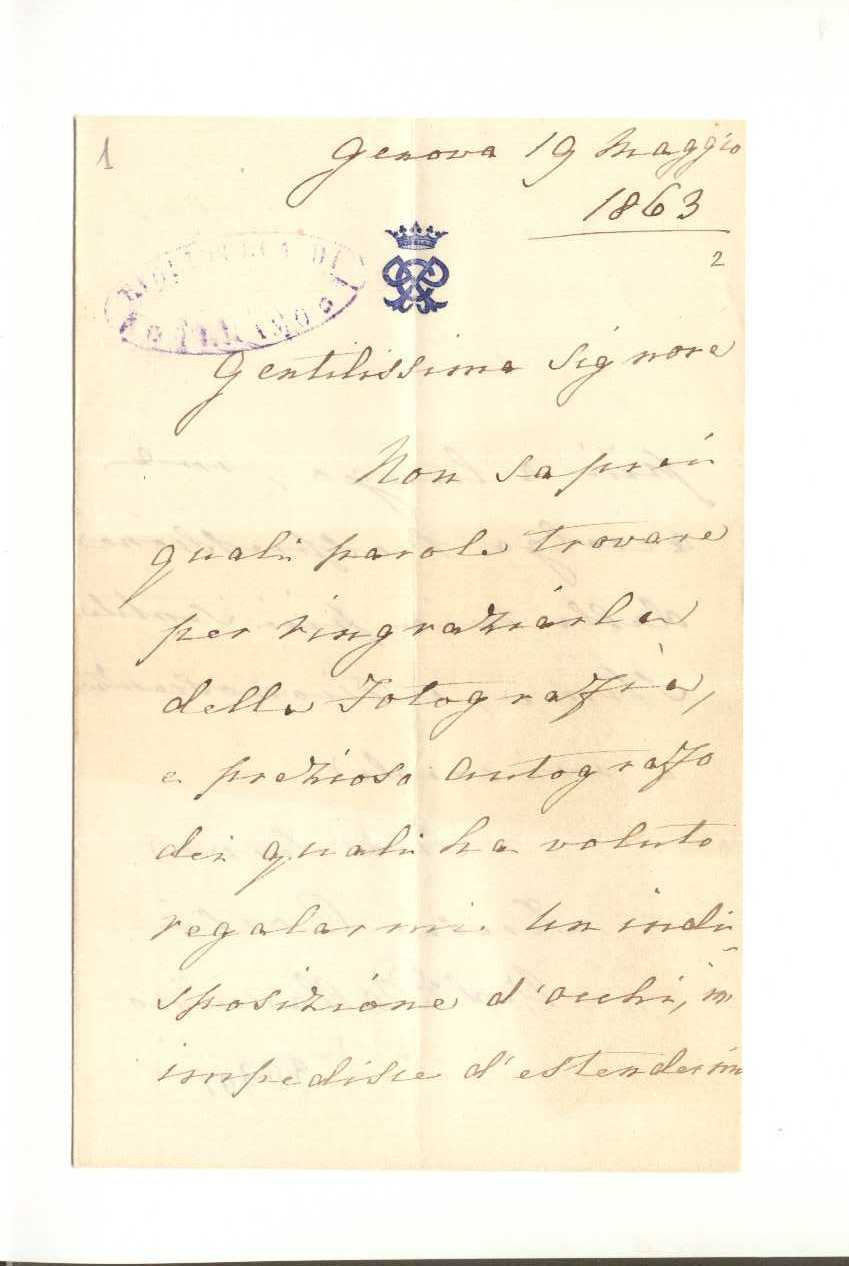 1
Genova 19 Maggio
1863
2
BIBLIOTECA DI
Gentilissima Signora
Non saprei
quali parole trovare
per ringraziarla
della Fotografia,
e prezioso autografo
dei quali ha voluto
regalarmi. Un indi
sposizione d'occhi, m
impedisce d'estendermi